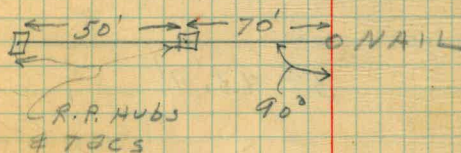 50' 70'
NAIL
90°
R.P. Hubs
& TACS